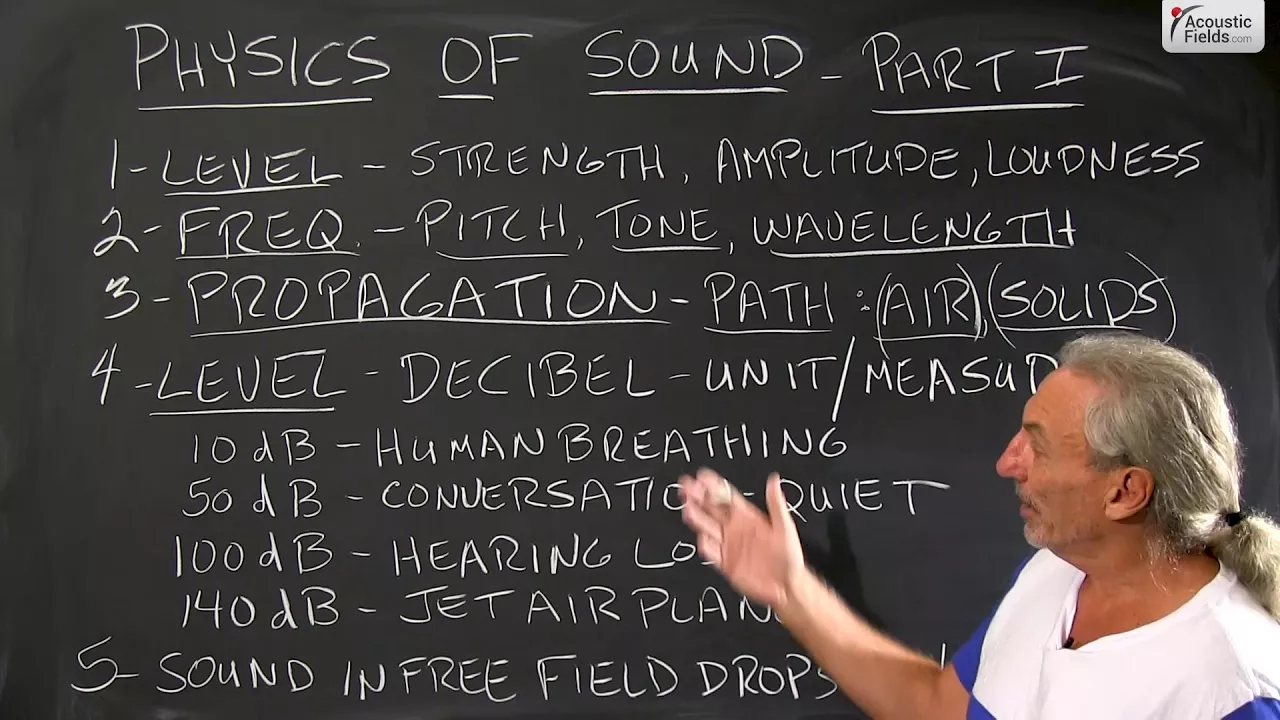 Acoustic
Fields.com
PHYSICS OF SOUND - PART I
1- LEVEL - STRENGTH, AMPLITUDE, LOUDNESS
2- FREQ. - PITCH, TONE, WAVELENGTH
3- PROPAGATION - PATH: (AIR), (SOLIDS)
4- LEVEL - DECIBEL - UNIT/MEASU
10 dB - HUMAN BREATHING
50 dB - CONVERSATIO - QUIET
100 dB - HEARING LO
140 dB - JET AIRPLAN
5- SOUND IN FREE FIELD DROPS